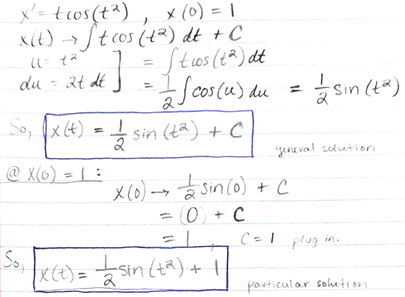 x' = t cos(t²) , x(0) = 1
x(t) → ∫ t cos(t²) dt + C
u = t² ] = ∫ t cos(t²) dt
du = 2t dt ] = 1/2 ∫ cos(u) du = 1/2 sin(t²)
So, x(t) = 1/2 sin(t²) + C
general solution
@ x(0) = 1 :
x(0) → 1/2 sin(0) + C
= (0) + C
= 1 , C = 1 plug in.
So, x(t) = 1/2 sin(t²) + 1
particular solution